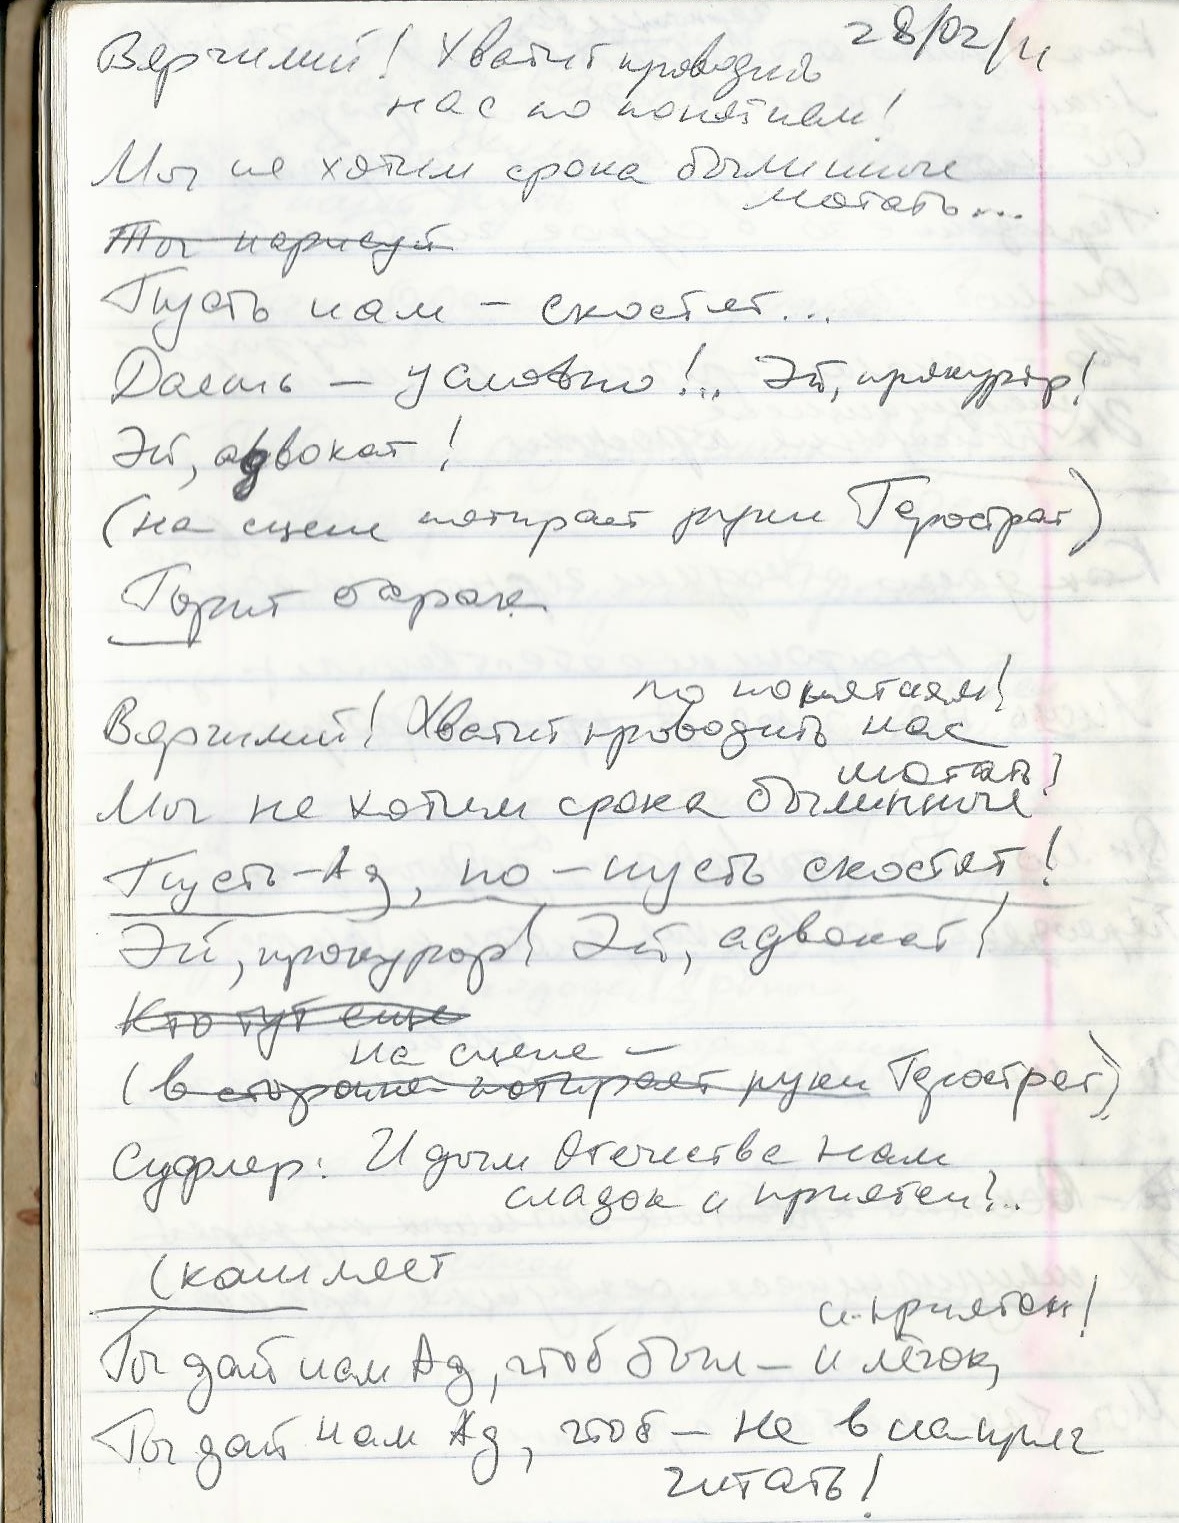 28/02/11
Вергилий! Хватит проводить
нас по понятиям!
Мы не хотим срока былинные
мотать...
Ты нарисуй
Пусть нам – скостят...
Даёшь – условно!.. Эй, прокурор!
Эй, адвокат!
(на сцене потирает руки Герострат)
Горит барак
по понятиям!
Вергилий! Хватит проводить нас
мотать!
Мы не хотим срока былинные
Пусть – Ад, но – пусть скостят!
Эй, прокурор! Эй, адвокат!
Кто тут еще
на сцене –
(в стороне потирает руки Герострат)
Суфлер: И дым Отечества нам
сладок и приятен?..
(кашляет
и приятен!
Ты дай нам Ад, чтоб был – и лёгок,
Ты дай нам Ад, чтоб – не в напряг
читать!